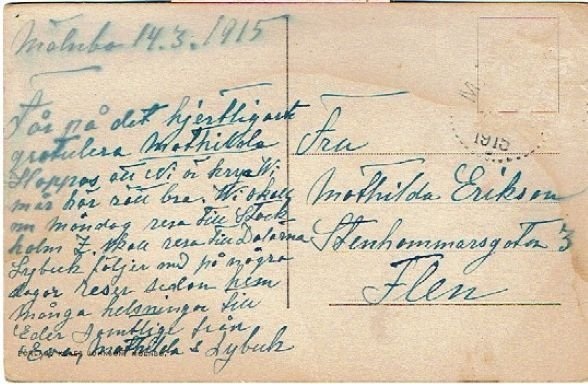 Mölnbo 14.3.1915
Får på det hjertligaste
gratulera Mathilda
Hoppas att Ni ä krya Vi
mår här rätt bra. Vi skall
nu måndag resa till Stock
holm J. skall resa till Dalarna
Lybeck följer med på några
dagar reser sedan hem
Många helsningar till
Eder samtliga från
Mathilda & Lybeck
Fru
Mathilda Erikson
Stenhammarsgatan 3
Flen
1915